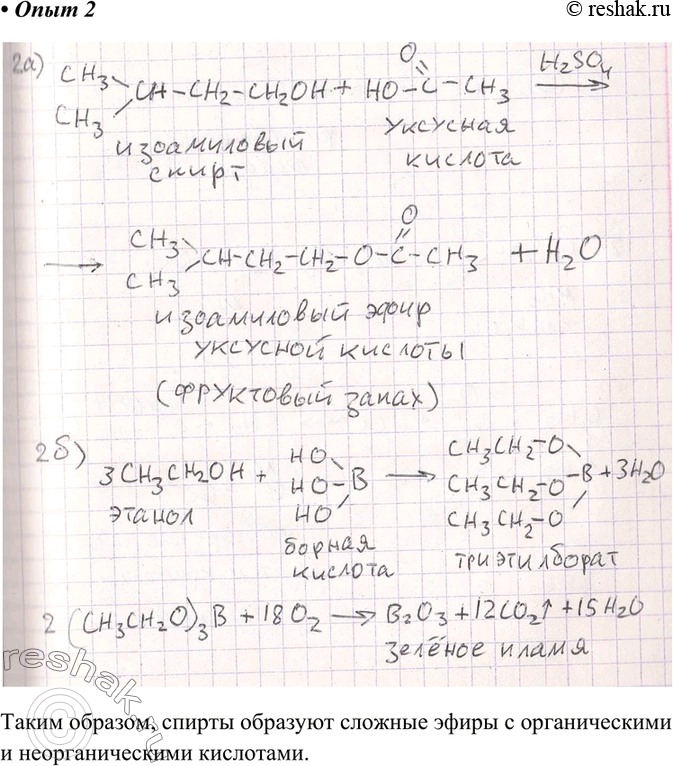 • Опыт 2
© reshak.ru
2а) CH3 CH3 CH–CH2–CH2OH + HO–C(=O)–CH3 H2SO4 →
изоамиловый спирт
уксусная кислота
→ CH3 CH3 CH–CH2–CH2–O–C(=O)–CH3 + H2O
изоамиловый эфир
уксусной кислоты
(фруктовый запах)
2б) 3CH3CH2OH + HO HO HO B → CH3CH2–O CH3CH2–O CH3CH2–O B + 3H2O
этанол
борная кислота
триэтилборат
2(CH3CH2O)3B + 18O2 → B2O3 + 12CO2↑ + 15H2O
зелёное пламя
reshak.ru
Таким образом, спирты образуют сложные эфиры с органическими
и неорганическими кислотами.